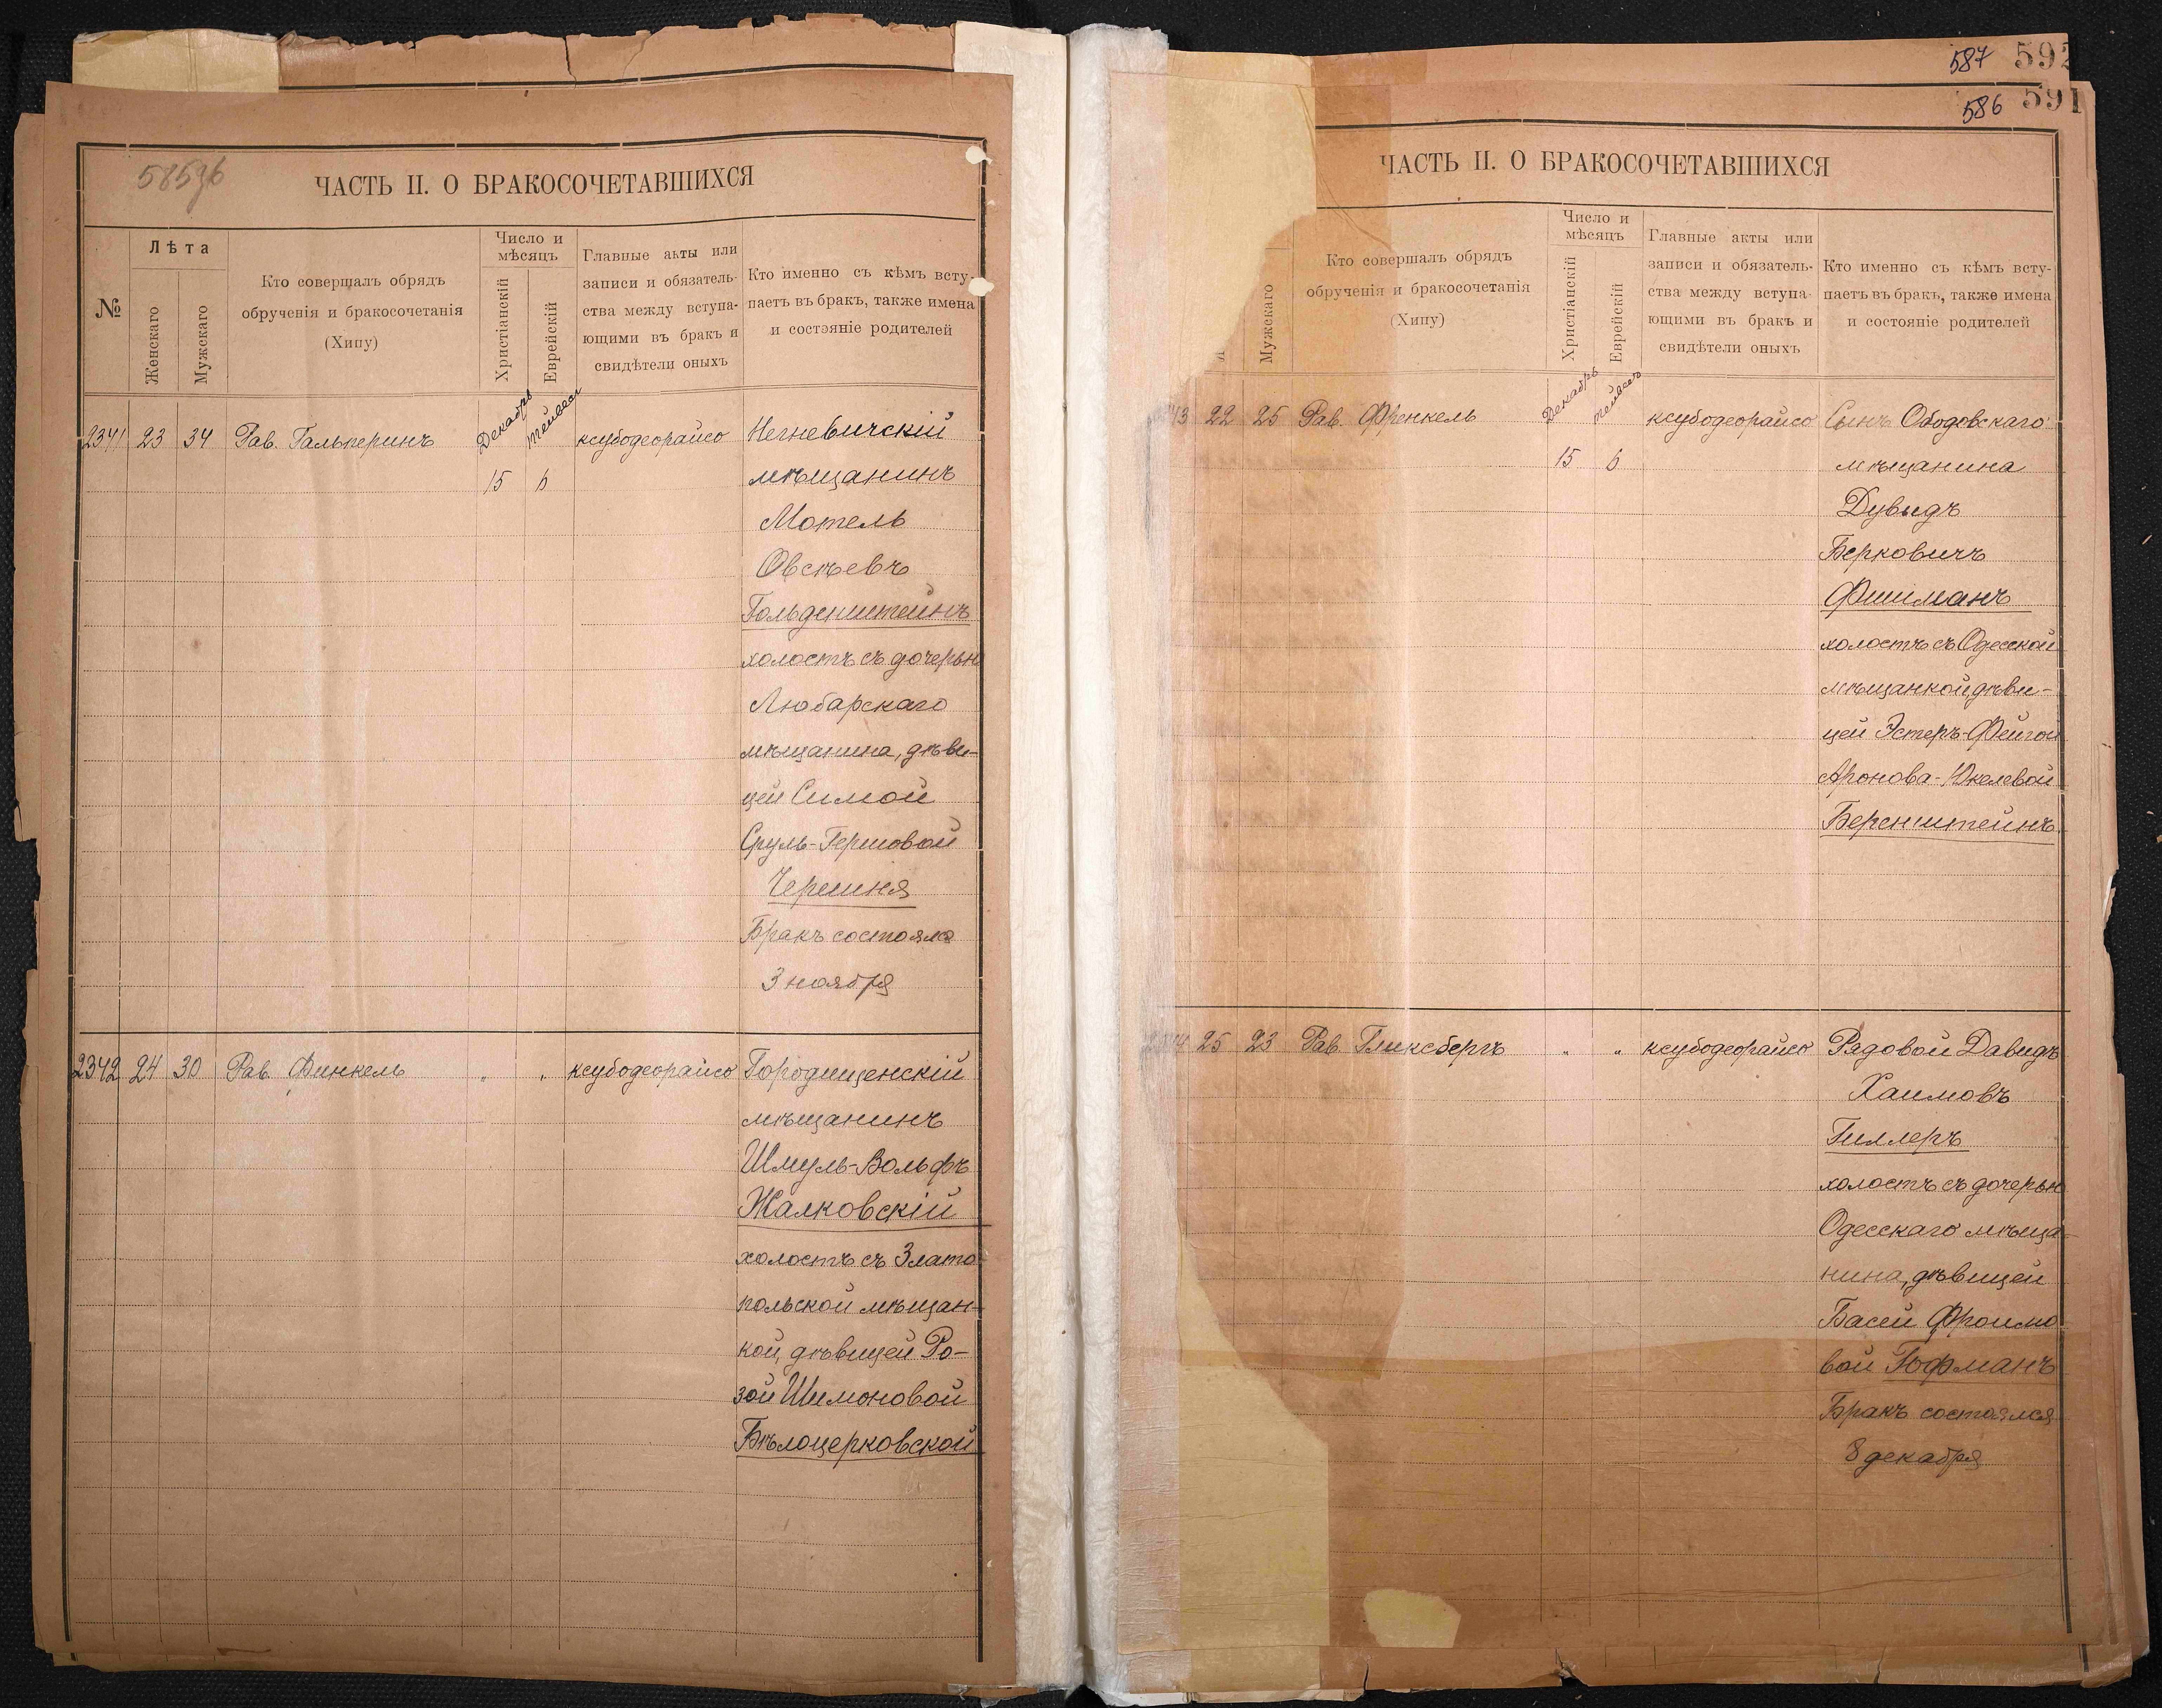 587 592
586 591
585 об
ЧАСТЬ II. О БРАКОСОЧЕТАВШИХСЯ
№
Лѣта
Женскаго
Мужскаго
Кто совершалъ обрядъ
обрученія и бракосочетанія
(Хипу)
Число и
мѣсяцъ
Христіанскій
Еврейскій
Главные акты или
записи и обязатель-
ства между вступа-
ющими въ бракъ и
свидѣтели оныхъ
Кто именно съ кѣмъ всту-
паетъ въ бракъ, также имена
и состояніе родителей
2341 23 34 Рав. Гальперинъ Декабрь Тейвесъ ксубодеорайсо Негневичскій
15 6 мѣщанинъ
Мотель
Овсѣевъ
Гольденштейнъ
холостъ съ дочерью
Любарскаго
мѣщанина, дѣви-
цей Симой
Сруль-Гершовой
Черешня
Бракъ состоялся
3 ноября
2342 24 30 Рав. Финкель " " ксубодеорайсо Городищенскій
мѣщанинъ
Шмуль-Вольфъ
Жалковскій
холостъ съ Злато-
польской мѣщан-
кой, дѣвицей Ро-
зой Шимоновой
Бѣлоцерковской
ЧАСТЬ II. О БРАКОСОЧЕТАВШИХСЯ
Мужскаго
Кто совершалъ обрядъ
обрученія и бракосочетанія
(Хипу)
Число и
мѣсяцъ
Христіанскій
Еврейскій
Главные акты или
записи и обязатель-
ства между вступа-
ющими въ бракъ и
свидѣтели оныхъ
Кто именно съ кѣмъ всту-
паетъ въ бракъ, также имена
и состояніе родителей
43 22 25 Рав. Френкель Декабрь Тейвесъ ксубодеорайсо Сынъ Ободовскаго
15 6 мѣщанина
Дувидъ
Берковичъ
Фишманъ
холостъ съ Одесской
мѣщанкой, дѣви-
цей Эстеръ-Фейгой
Аронова-Юкелевой
Беренштейнъ
44 25 23 Рав. Гликсбергъ " " ксубодеорайсо Рядовой Давидъ
Хаимовъ
Гиллеръ
холостъ съ дочерью
Одесскаго мѣща-
нина, дѣвицей
Басей Фроимо
вой Гофманъ
Бракъ состоялся
8 декабря